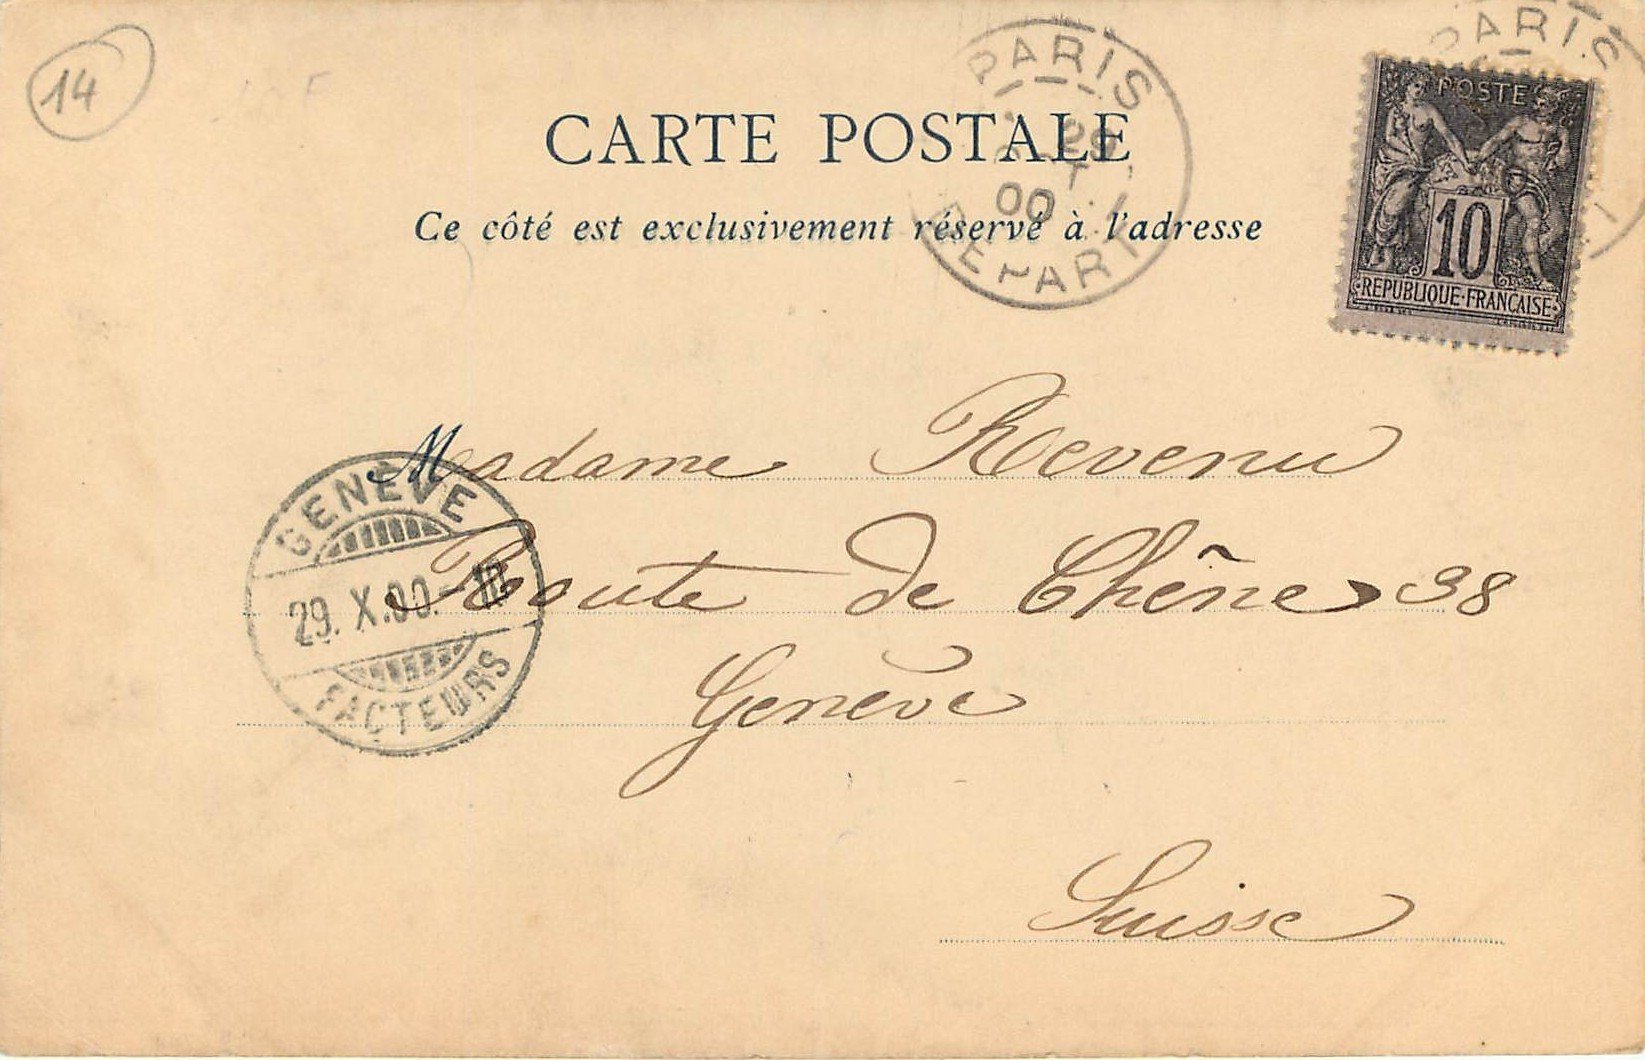 14
PARIS
PARIS
29
00
DEPART
POSTES
10
REPUBLIQUE FRANÇAISE
CARTE POSTALE
Ce côté est exclusivement réservé à l'adresse
Madame Revenu
Route de Chêne 38
Genève
Suisse
GENÈVE
29. X.00.-10
FACTEURS